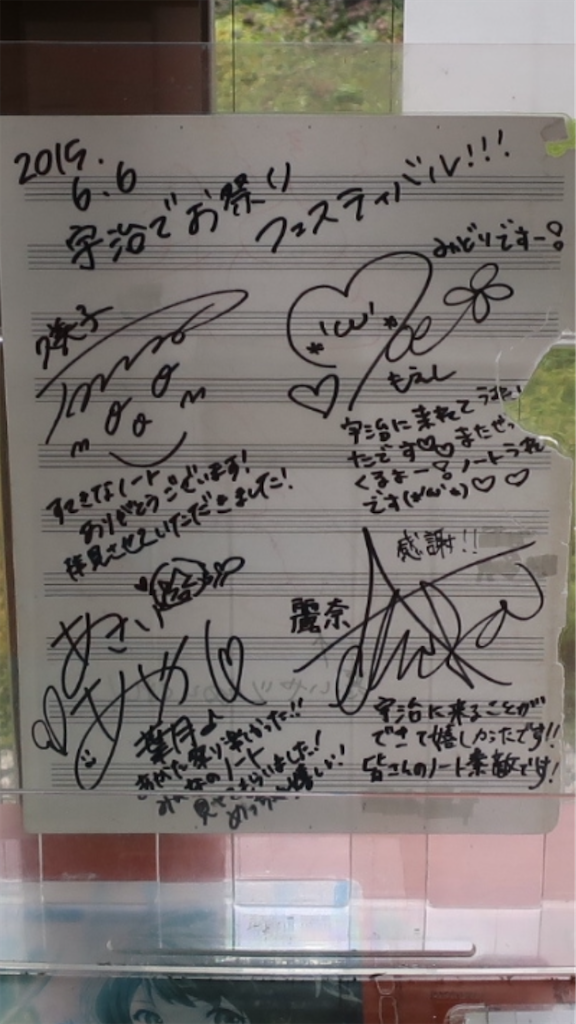 2019.
6.6
宇治でお祭り
フェスティバル!!!
みどりですー!
もえし
宇治に来れてうれし
たです♡♡またぜっ
くるよー!ノートうれ
です(°ω°)♡♡
すてきなノート
ありがとうございます!
拝見させていただきました!
感謝!!
麗奈
宇治に来ることが
できて嬉しかたです!!
皆さんのノート素敵です!
あさい
あやか
葉月♪
あがた祭り楽しかった!!
みんなのノート
見せてもらいました!
めっちゃ嬉しい!